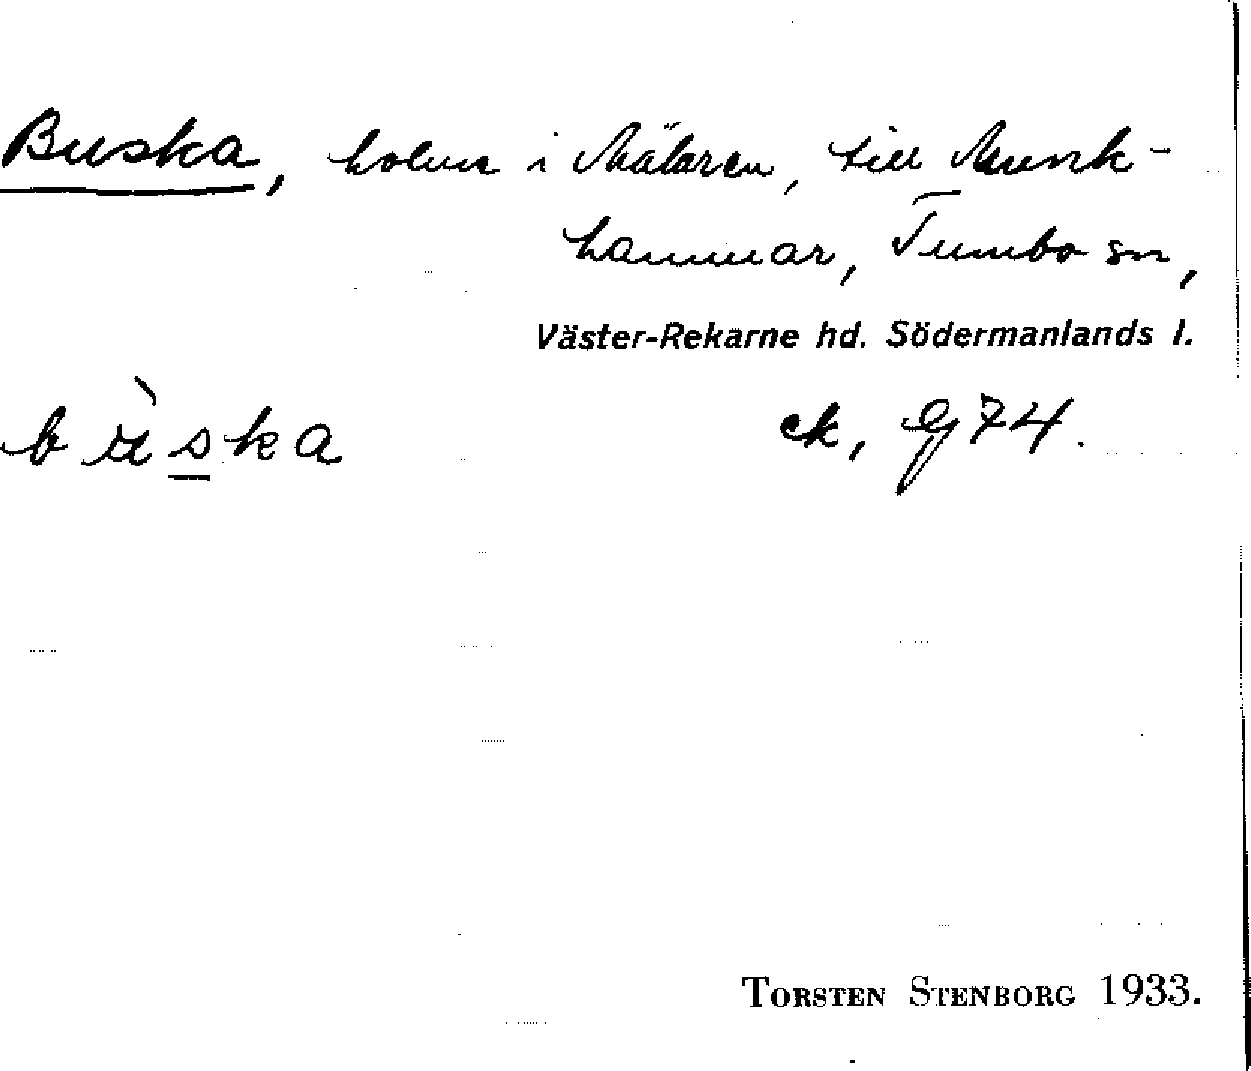 Buska, holme i Mälaren, till Munk-
hammar, Tumbo sn,
Väster-Rekarne hd. Södermanlands l.
bùska ek, G74.
TORSTEN STENBORG 1933.